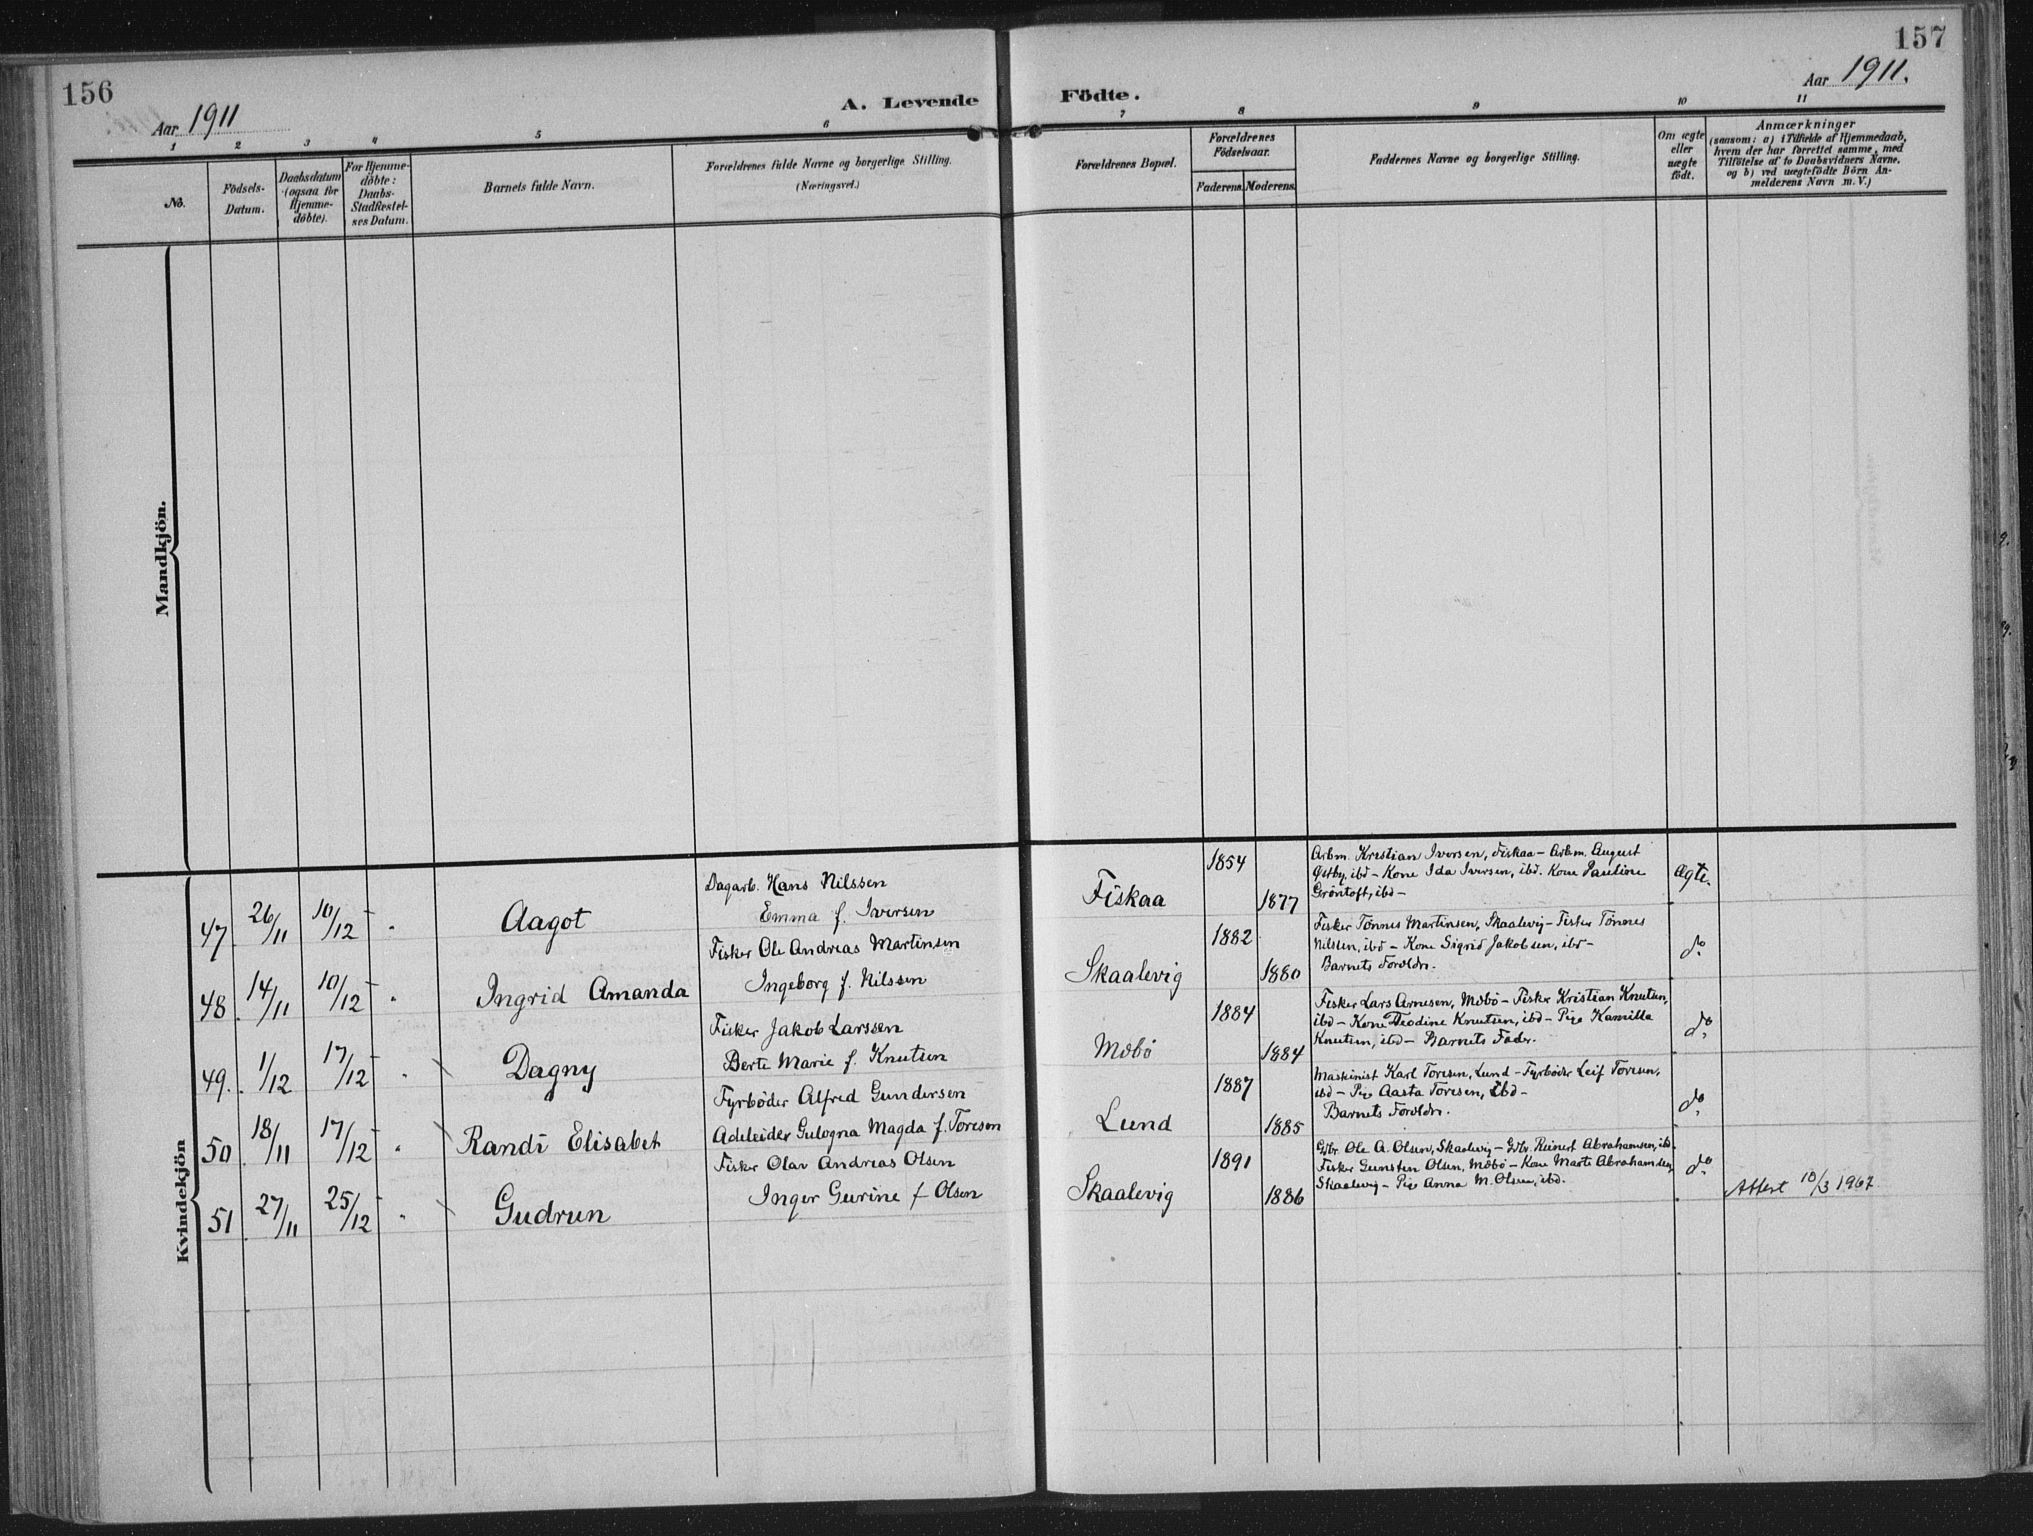 156
157
Aar 1911
A. Levende Födte.
Aar 1911.
1 2 3 4 5 6 7 8 9 10 11
No.
Födsels-
Datum.
Daabsdatum
(ogsaa for
Hjemme-
döbte).
For Hjemme-
döbte:
Daabs-
Stadfæstel-
ses Datum.
Barnets fulde Navn.
Forældrenes fulde Navne og borgerlige Stilling.
(Næringsvei.)
Forældrenes Bopæl.
Forældrenes
Födselsaar.
Faderens. Moderens.
Faddernes Navne og borgerlige Stilling.
Om ægte
eller
uægte
födt.
Anmærkninger
(saasom: a) i Tilfælde af Hjemmedaab,
hvem der har forrettet samme, med
Tilföielse af to Daabsvidners Navne.
og b) ved uægtefödte Börn An-
melderens Navn m.V.)
Mandkjön.
Kvindekjön
47 26/11 10/12 - Aagot
Dagarb. Hans Nilssen
Emma f. Iversen
Fiskaa
1854
1877
Arbm. Kristian Iversen, Fiskaa - Arbm. August
Østby, ibd - Kone Ida Iversen, ibd. Kone Pauline
Gröntoft, ibd -
Ægte.
48 14/11 10/12 - Ingrid Amanda
Fisker Ole Andreas Martinsen
Ingeborg f. Nilssen
Skaalevig
1882
1880
Fisker Tönnes Martinsen, Skaalevig - Fisker Tönnes
Nilssen, ibd - Kone Sigrid Jakobsen, ibd -
Barnets Foreldr.
do
49. 1/12 17/12 - Dagny
Fisker Jakob Larssen
Berte Marie f. Knutsen
Mæbö
1884
1884
Fisker Lars Arnesen, Mæbö - Fisker Kristian Knutsen,
ibd - Kone Teodine Knutsen, ibd - Pige Kamilla
Knutsen, ibd - Barnets Fader.
do
50 18/11 17/12 - Randi Elisabet
Fyrbøder Alfred Gundersen
Adeleider Gulogna Magda f. Toresen
Lund
1887
1885
Maskinist Karl Toresen, Lund - Fyrbøder Leif Toresen,
ibd - Pige Aasta Toresen, ibd -
Barnets Foreldr.
do
51 27/11 25/12 - Gudrun
Fisker Olav Andreas Olsen
Inger Gurine f Olsen
Skaalevig
1891
1886
Gbr. Ole A. Olsen, Skaalevig - Gbr. Reinert Abrahamsen, ibd
Fisker Gunsten Olsen, Mæbö - Kone Marte Abrahamsen,
Skaalevig - Pige Anna M. Olsen, ibd.
do
Attest 10/3 1967